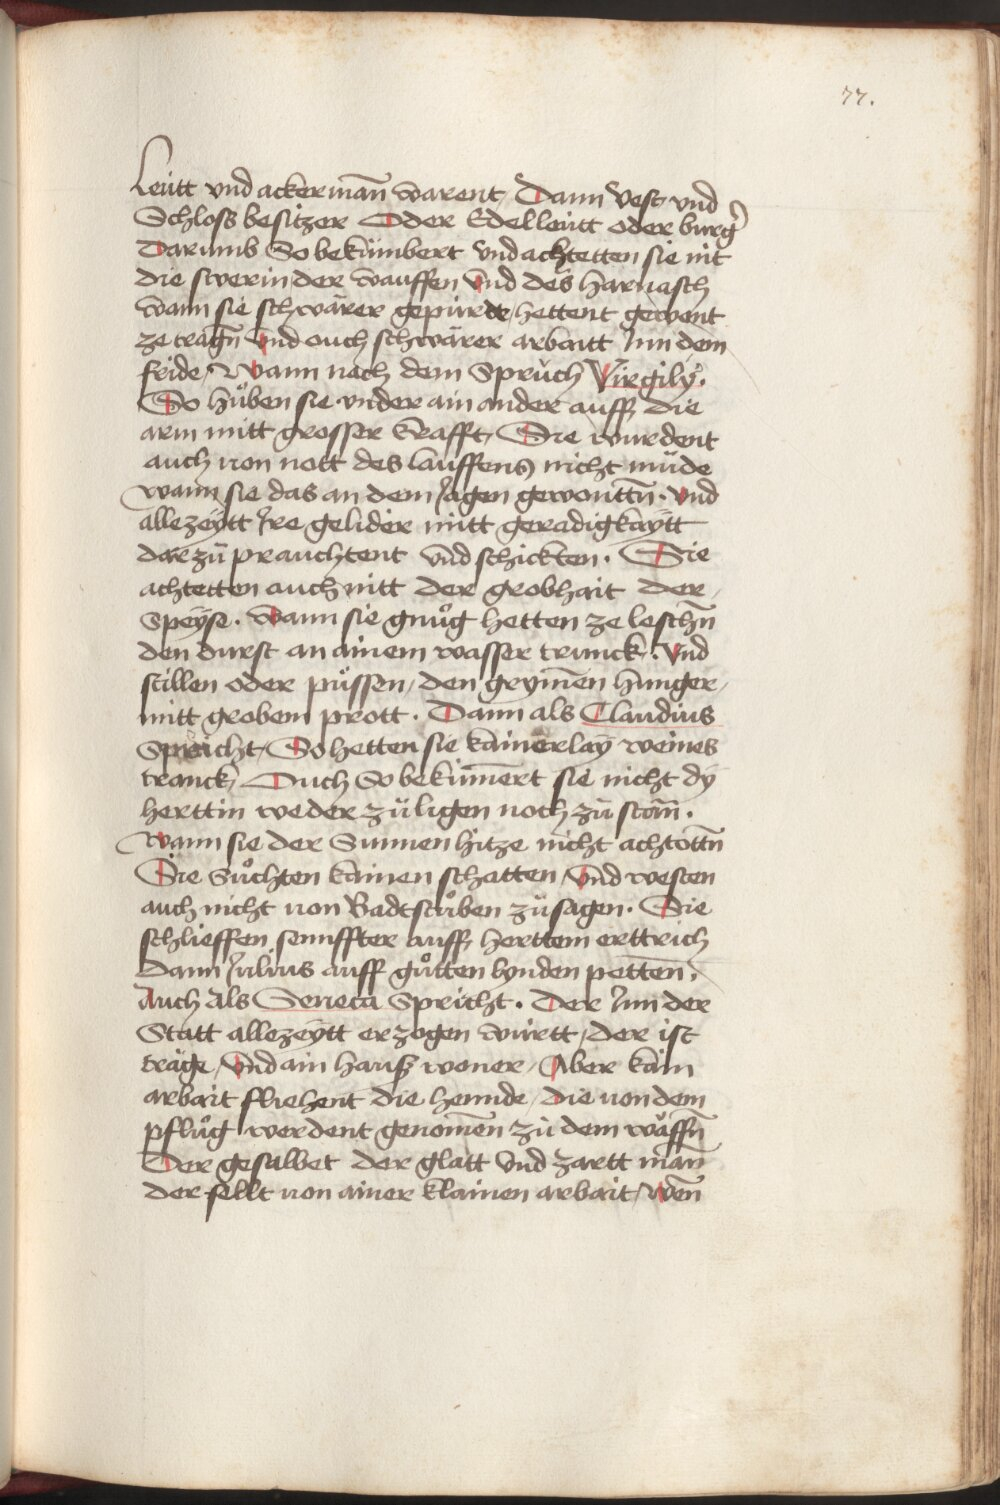 77.
Leütt vnd ackerman̄ warent, Dann Vest vnd
Schloss besitzer Oder Edelleütt oder burgʼ
Darumb So bekümbert vnd achtetten sie nit
die swerin der wauffen Vnd des harnasch
wann sie schwärer gepürde, hettent gewent
ze traḡn Vnd ouch schwärer arbaitt Jnn dem
fride, Wann nach dem Sprüch Virgilÿ.
So hůben sie vnder ain ander auff, die
arm mitt grosser krafft, Sie wurdent
auch von nott des lauffens nicht müde
wann sie das an dem Jagen gewontt̄n. Vnd
allezeÿtt Jre gelider mitt geradigkaÿtt
dar zü prauchtent vnd schickten. Sie
achtetten auch nitt der grobhait der
Speÿse. Wann sie gnůg hetten ze lesch̄n
den durst an ainem wasser trunck. Vnd
stillen oder půssen, den grym̄en hunger,
mitt grobem prott. Dann als Claudius
Spricht, So hetten sie kainerlaÿ weines
tranck, Ouch So beküm̄ert sie nicht dÿ
herttin weder zü ligen noch zü stān.
Wann sie der Sunnen hitze nicht achtott̄n
Sie Sůchten kainen schatten, Vnd westen
auch nicht von Badtstůben zü sagen. Sie
schlieffen sennffter auff herttem erttrich
Dann Julius auff gůtten lynden petten.
Auch Als Seneca Spricht. Der Jnn der
Statt allezeÿtt erzogen württ, der ist
träge, Vnd ain hauß woner, Aber kain
arbait fliehent die hennde, die von dem
pflůg werdent genom̄en zü dem wåff̄n
Der gesalbet der glatt Vnd zartt man̄
der fellt von ainer klainen arbait, Wen̄